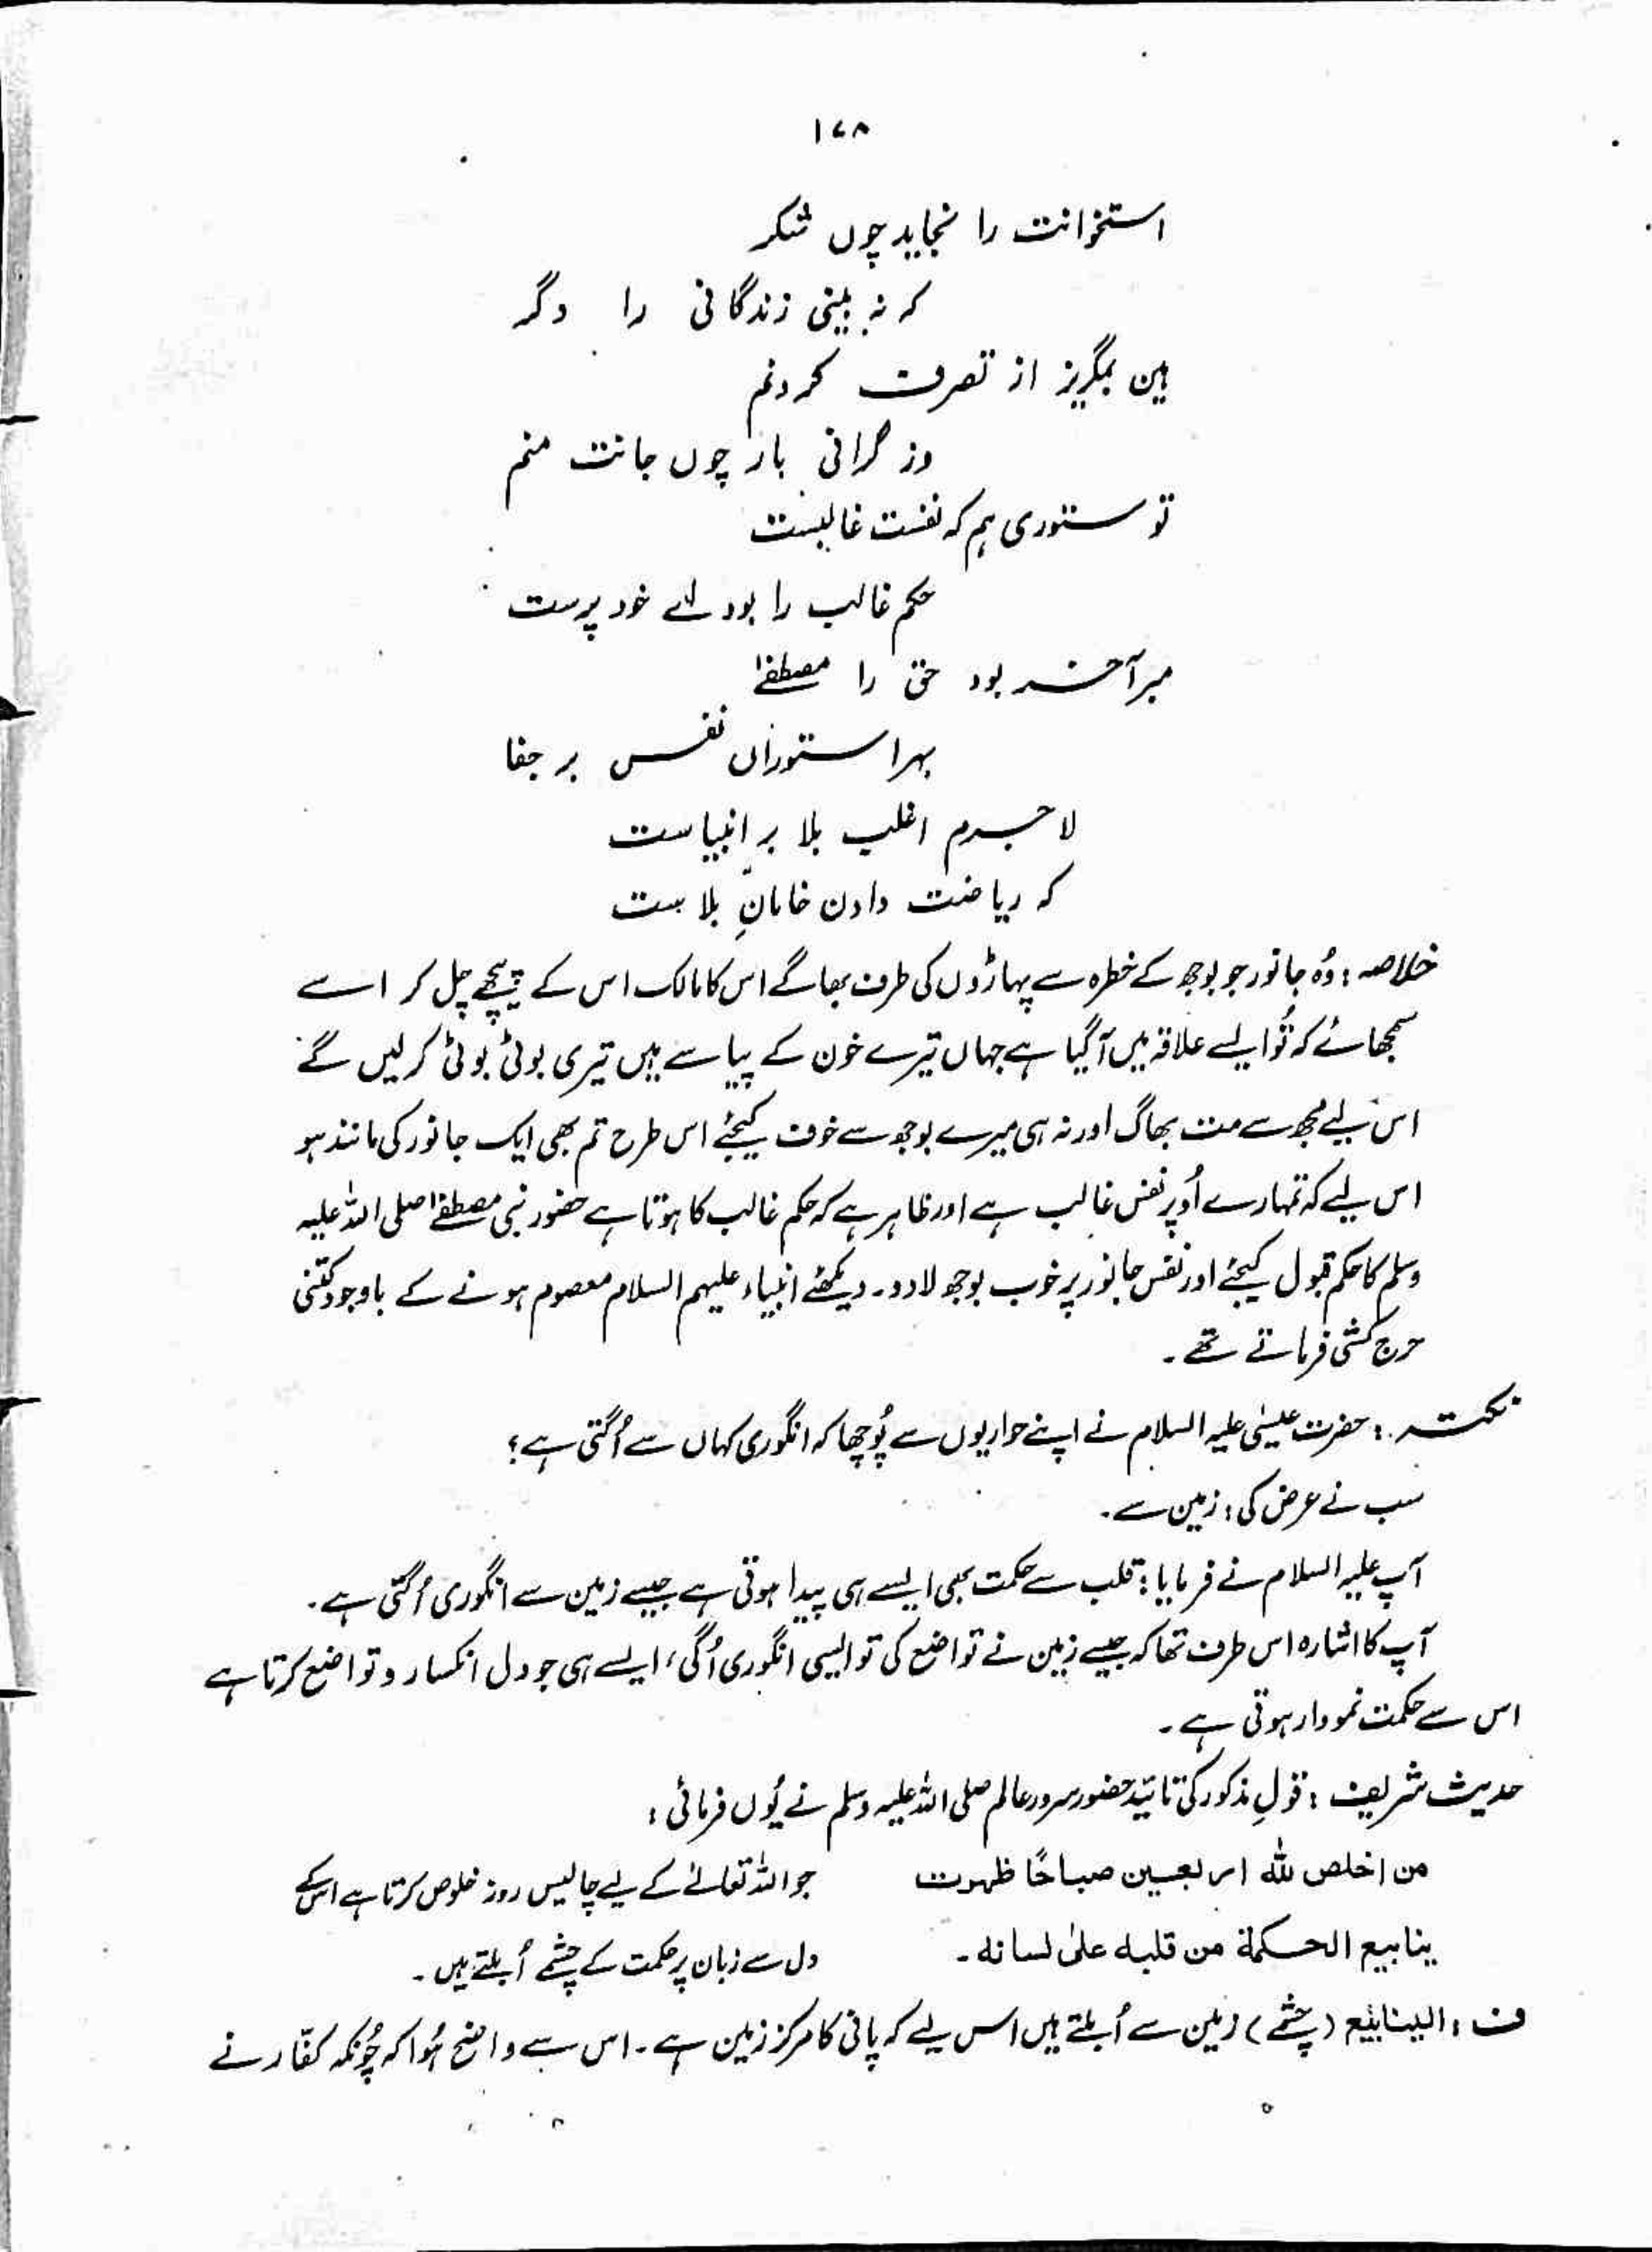 ۱۷۸
استخوانت را نجاید چوں شکر
کہ نہ بینی زندگانی را دگر
ہین بمگریز از تصرف کردنم
وز گرانی بار چوں جانت منم
تو ستوری ہم کہ نفست غالبست
حکم غالب را بود اے خود پرست
میر آخر بود حق را مصطفےٰ
بہر استوران نفس بر جفا
لا جرم اغلب بلا بر انبیاست
کہ ریاضت دادن خامانِ بلا ست
خلاصہ : وُہ جانور جو بوجھ کے خطرہ سے پہاڑوں کی طرف بھاگے اس کا مالک اس کے پیچھے چل کر اسے
سمجھائے کہ تُو ایسے علاقہ میں آگیا ہے جہاں تیرے خون کے پیاسے ہیں تیری بوٹی بوٹی کر لیں گے
اس لیے مجھ سے مت بھاگ اور نہ ہی میرے بوجھ سے خوف کیجئے اس طرح تم بھی ایک جانور کی مانند ہو
اس لیے کہ تمہارے اُوپر نفس غالب ہے اور ظاہر ہے کہ حکم غالب کا ہوتا ہے حضور نبی مصطفےٰ صلی اللہ علیہ
وسلم کا حکم قبول کیجئے اور نفس جانور پر خوب بوجھ لادو۔ دیکھئے انبیاء علیہم السلام معصوم ہونے کے باوجود کتنی
حرج کشی فرماتے تھے۔
نکتہ : حضرت عیسٰی علیہ السلام نے اپنے حواریوں سے پُوچھا کہ انگوری کہاں سے اُگتی ہے؟
سب نے عرض کی : زمین سے۔
آپ علیہ السلام نے فرمایا : قلب سے حکمت بھی ایسے ہی پیدا ہوتی ہے جیسے زمین سے انگوری اُگتی ہے۔
آپ کا اشارہ اس طرف تھا کہ جیسے زمین نے تواضع کی تو ایسی انگوری اُگی، ایسے ہی جو دل انکسار و تواضع کرتا ہے
اس سے حکمت نمودار ہوتی ہے۔
حدیث شریف : قولِ مذکور کی تائید حضور سرور عالم صلی اللہ علیہ وسلم نے یُوں فرمائی :
من اخلص للہ اربعین صباحًا ظہرت
ینابیع الحکمۃ من قلبہ علیٰ لسانہ۔
جو اللہ تعالےٰ کے لیے چالیس روز خلوص کرتا ہے اس کے
دل سے زبان پر حکمت کے چشمے اُبلتے ہیں۔
ف : الینابیع (چشمے) زمین سے اُبلتے ہیں اس لیے کہ پانی کا مرکز زمین ہے۔ اس سے واضح ہُوا کہ چُونکہ کفّار نے